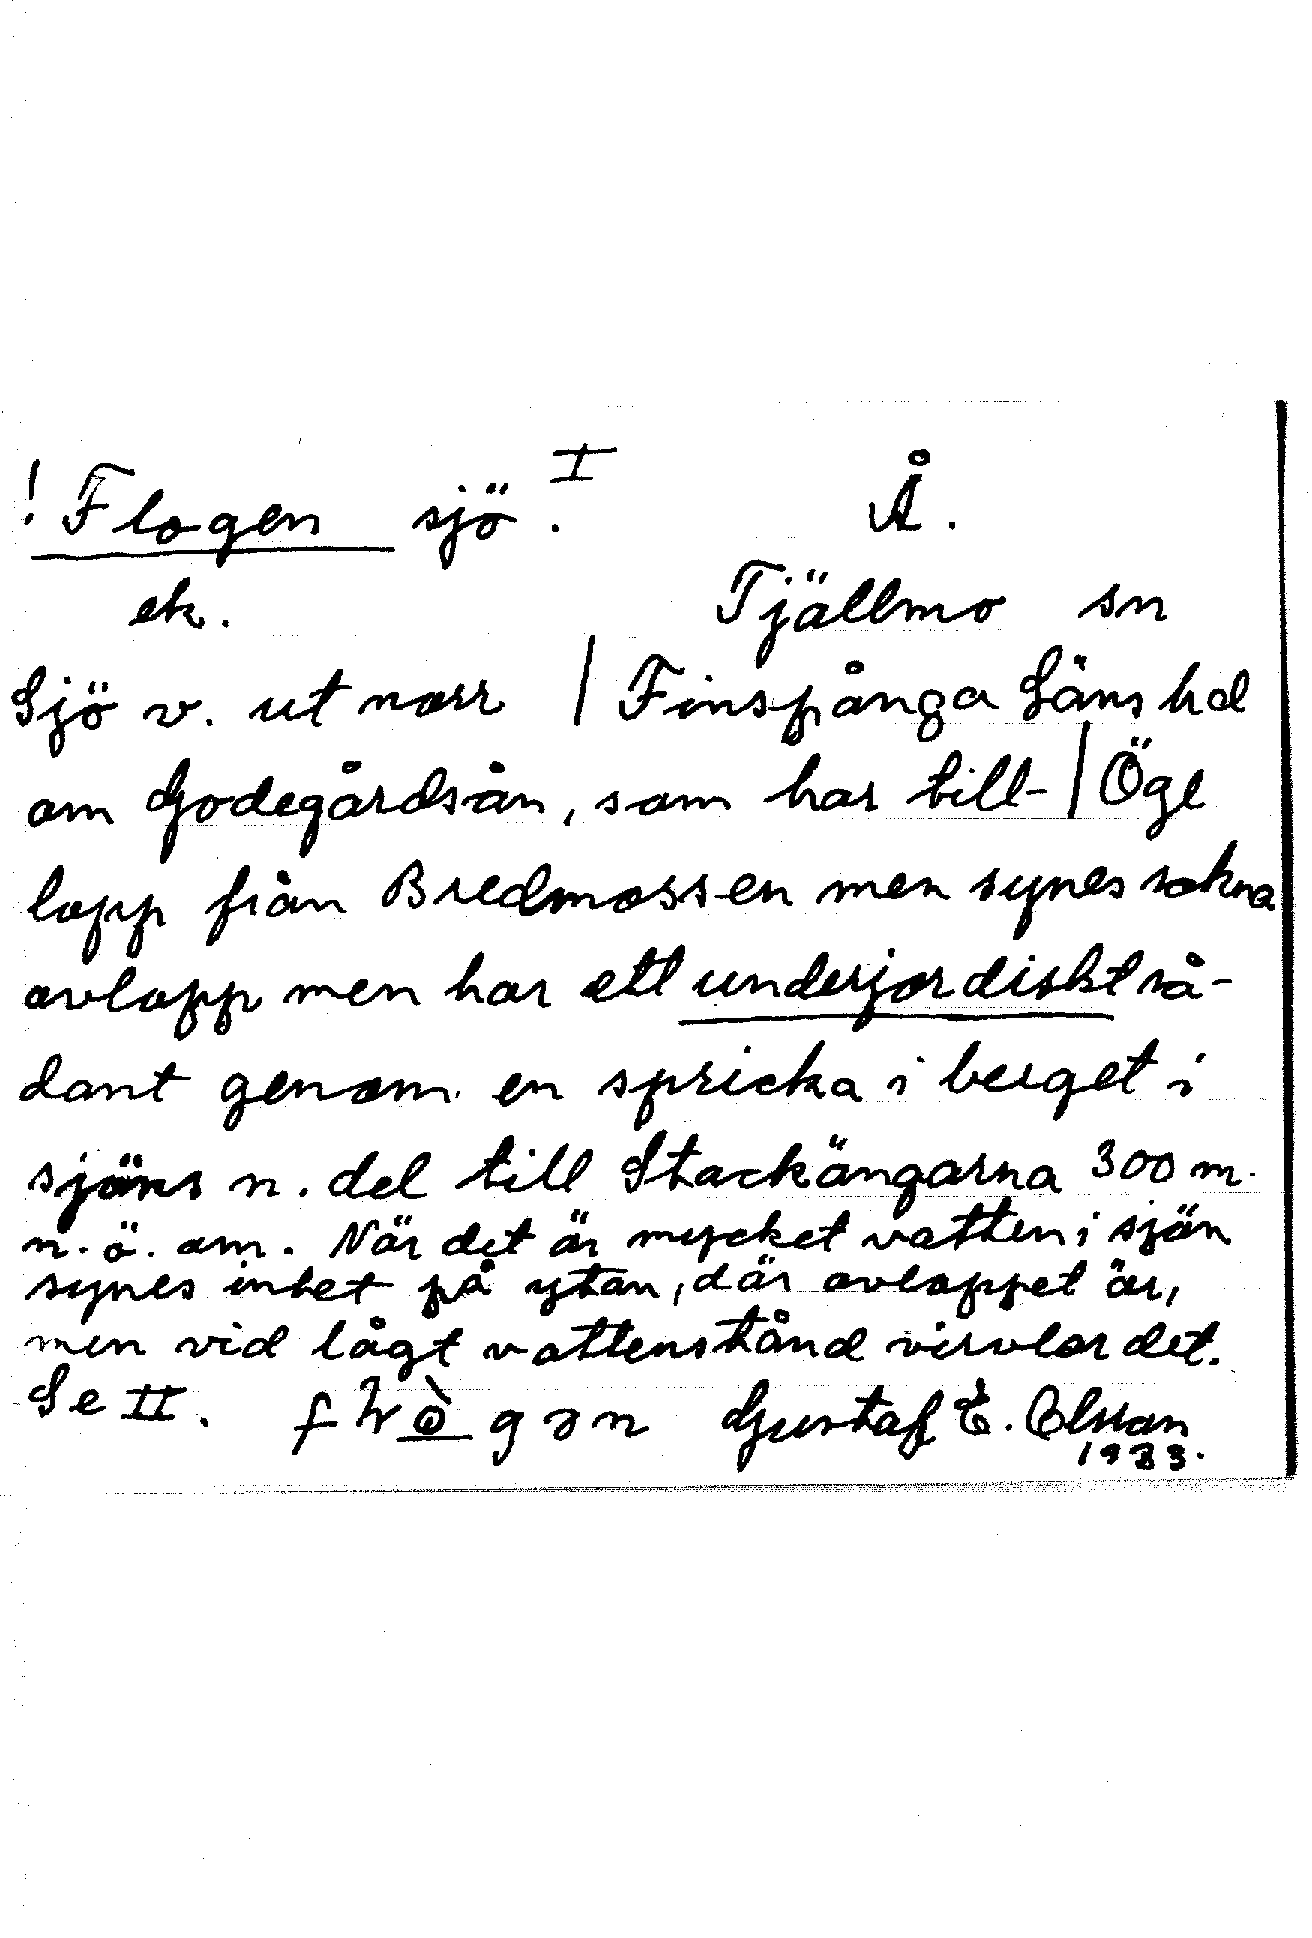 ! Flogen sjö. I Å.
ek. Tjällmo sn
Sjö v. ut norr | Finspånga Läns hd
om Godegårdsån, som har till- | Ögl
lopp från Bredmossen men synes sakna
avlopp men har ett underjordiskt så-
dant genom en spricka i berget i
sjöns n. del till Stackängarna 300 m.
n.ö. om. När det är mycket vatten i sjön
synes intet på ytan, där avloppet är,
men vid lågt vattenstånd virvlar det.
Se II. Gustaf E. Olsson
1933.